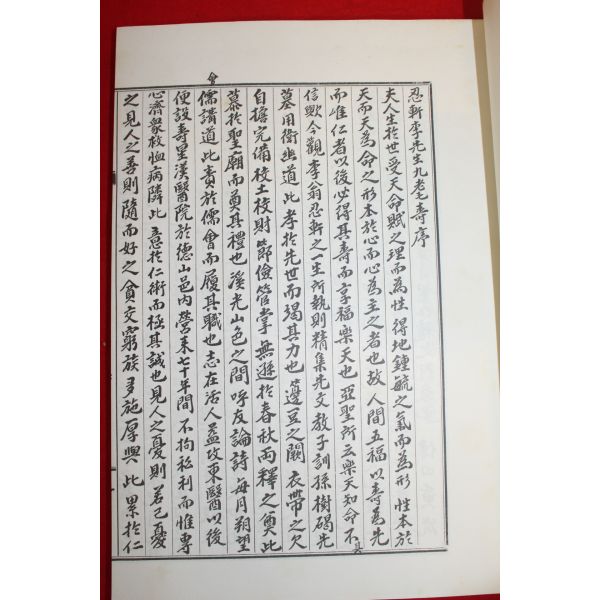 忍軒李先生九耋壽序
夫人生於世受天命賦之理而為性得地鍾毓之氣而為形性本於
天而天為命之形本於心而心為主之者也故人間五福以壽為先
而唯仁者以後必得其壽而享福樂天也亞聖所云樂天知命不其
信歟今觀李翁忍軒之一生所執則精集先文教子訓孫樹碣先
墓用衛幽道此孝於先世而竭其力也籩豆之闕衣帶之欠
自擔完備校土校財節儉管掌無遜於春秋兩釋之奠此
慕於聖廟而奠其禮也溪光山色之間呼友論詩每月朔望
會儒講道此責於儒會而履其職也志在活人益攻東醫以後
便設壽星漢醫院於德山邑內營來七十年間不拘私利而惟專
心濟衆救恤病隣此意於仁術而極其誠也見人之憂則若己憂
之見人之善則隨而好之貧交窮族多施厚與此累於仁